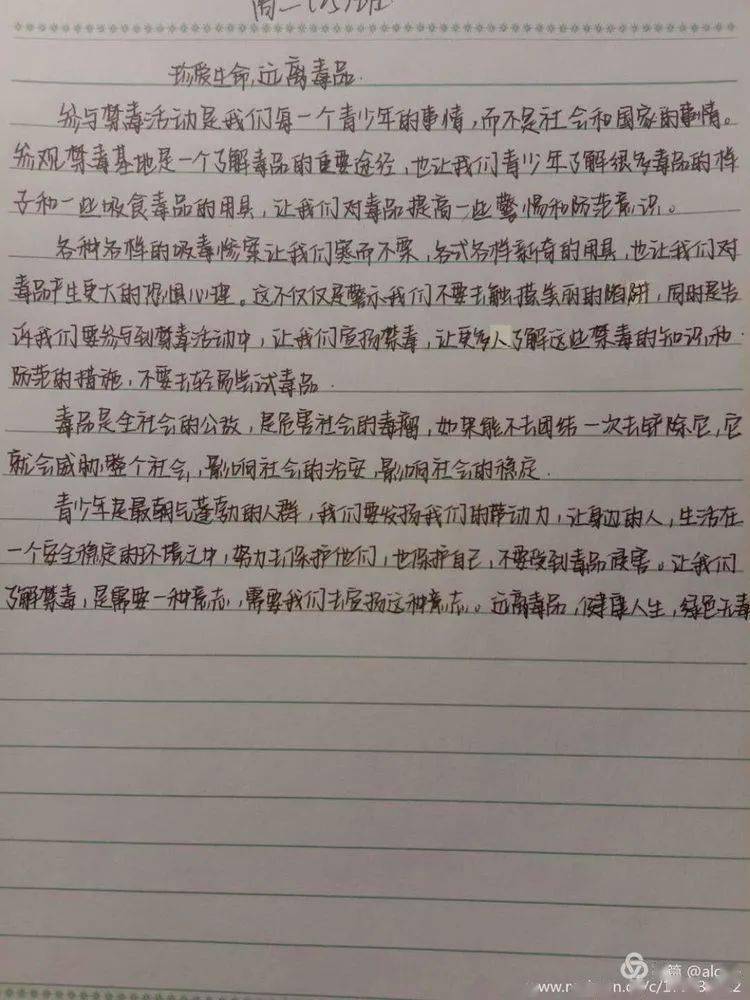 高二
珍爱生命,远离毒品.
参与禁毒活动是我们每一个青少年的事情,而不是社会和国家的事情。
参观禁毒基地是一个了解毒品的重要途径,也让我们青少年了解很多毒品的样
子和一些吸食毒品的用具,让我们对毒品提高一些警惕和防范意识。
各种各样的吸毒惨案让我们寒而不栗,各式各样新奇的用具,也让我们对
毒品产生更大的恐惧心理。这不仅仅是警示我们不要去触摸美丽的陷阱,同时是告
诉我们要参与到禁毒活动中,让我们宣扬禁毒,让更多人了解这些禁毒的知识和
防范的措施,不要去轻易尝试毒品.
毒品是全社会的公敌,是危害社会的毒瘤,如果能不去团结一次去铲除它,它
就会威胁整个社会,影响社会的治安,影响社会的稳定.
青少年是最朝气蓬勃的人群,我们要发扬我们的带动力,让身边的人,生活在
一个安全稳定的环境之中,努力去保护他们,也保护自己,不要受到毒品侵害。让我们
了解禁毒,是需要一种意志,需要我们去宣扬这种意志。远离毒品,健康人生,绿色无毒
篇 @alc